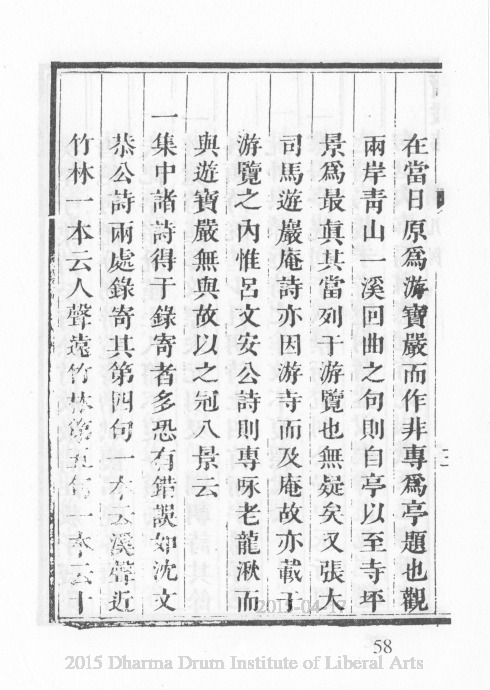 在當日原爲游寶嚴而作非專爲亭題也觀
兩岸靑山一溪回曲之句則自亭以至寺坪
景爲最眞其當列于游覽也無疑矣又張大
司馬遊巖庵詩亦因游寺而及庵故亦載于
游覽之內惟呂文安公詩則專咏老龍湫而
與遊寶嚴無與故以之冠八景云
一集中諸詩得于錄寄者多恐有錯誤如沈文
恭公詩兩處錄寄其第四句一本云溪聲近
竹林一本云人聲遠竹林第五句一本云十
58
2015 Dharma Drum Institute of Liberal Arts